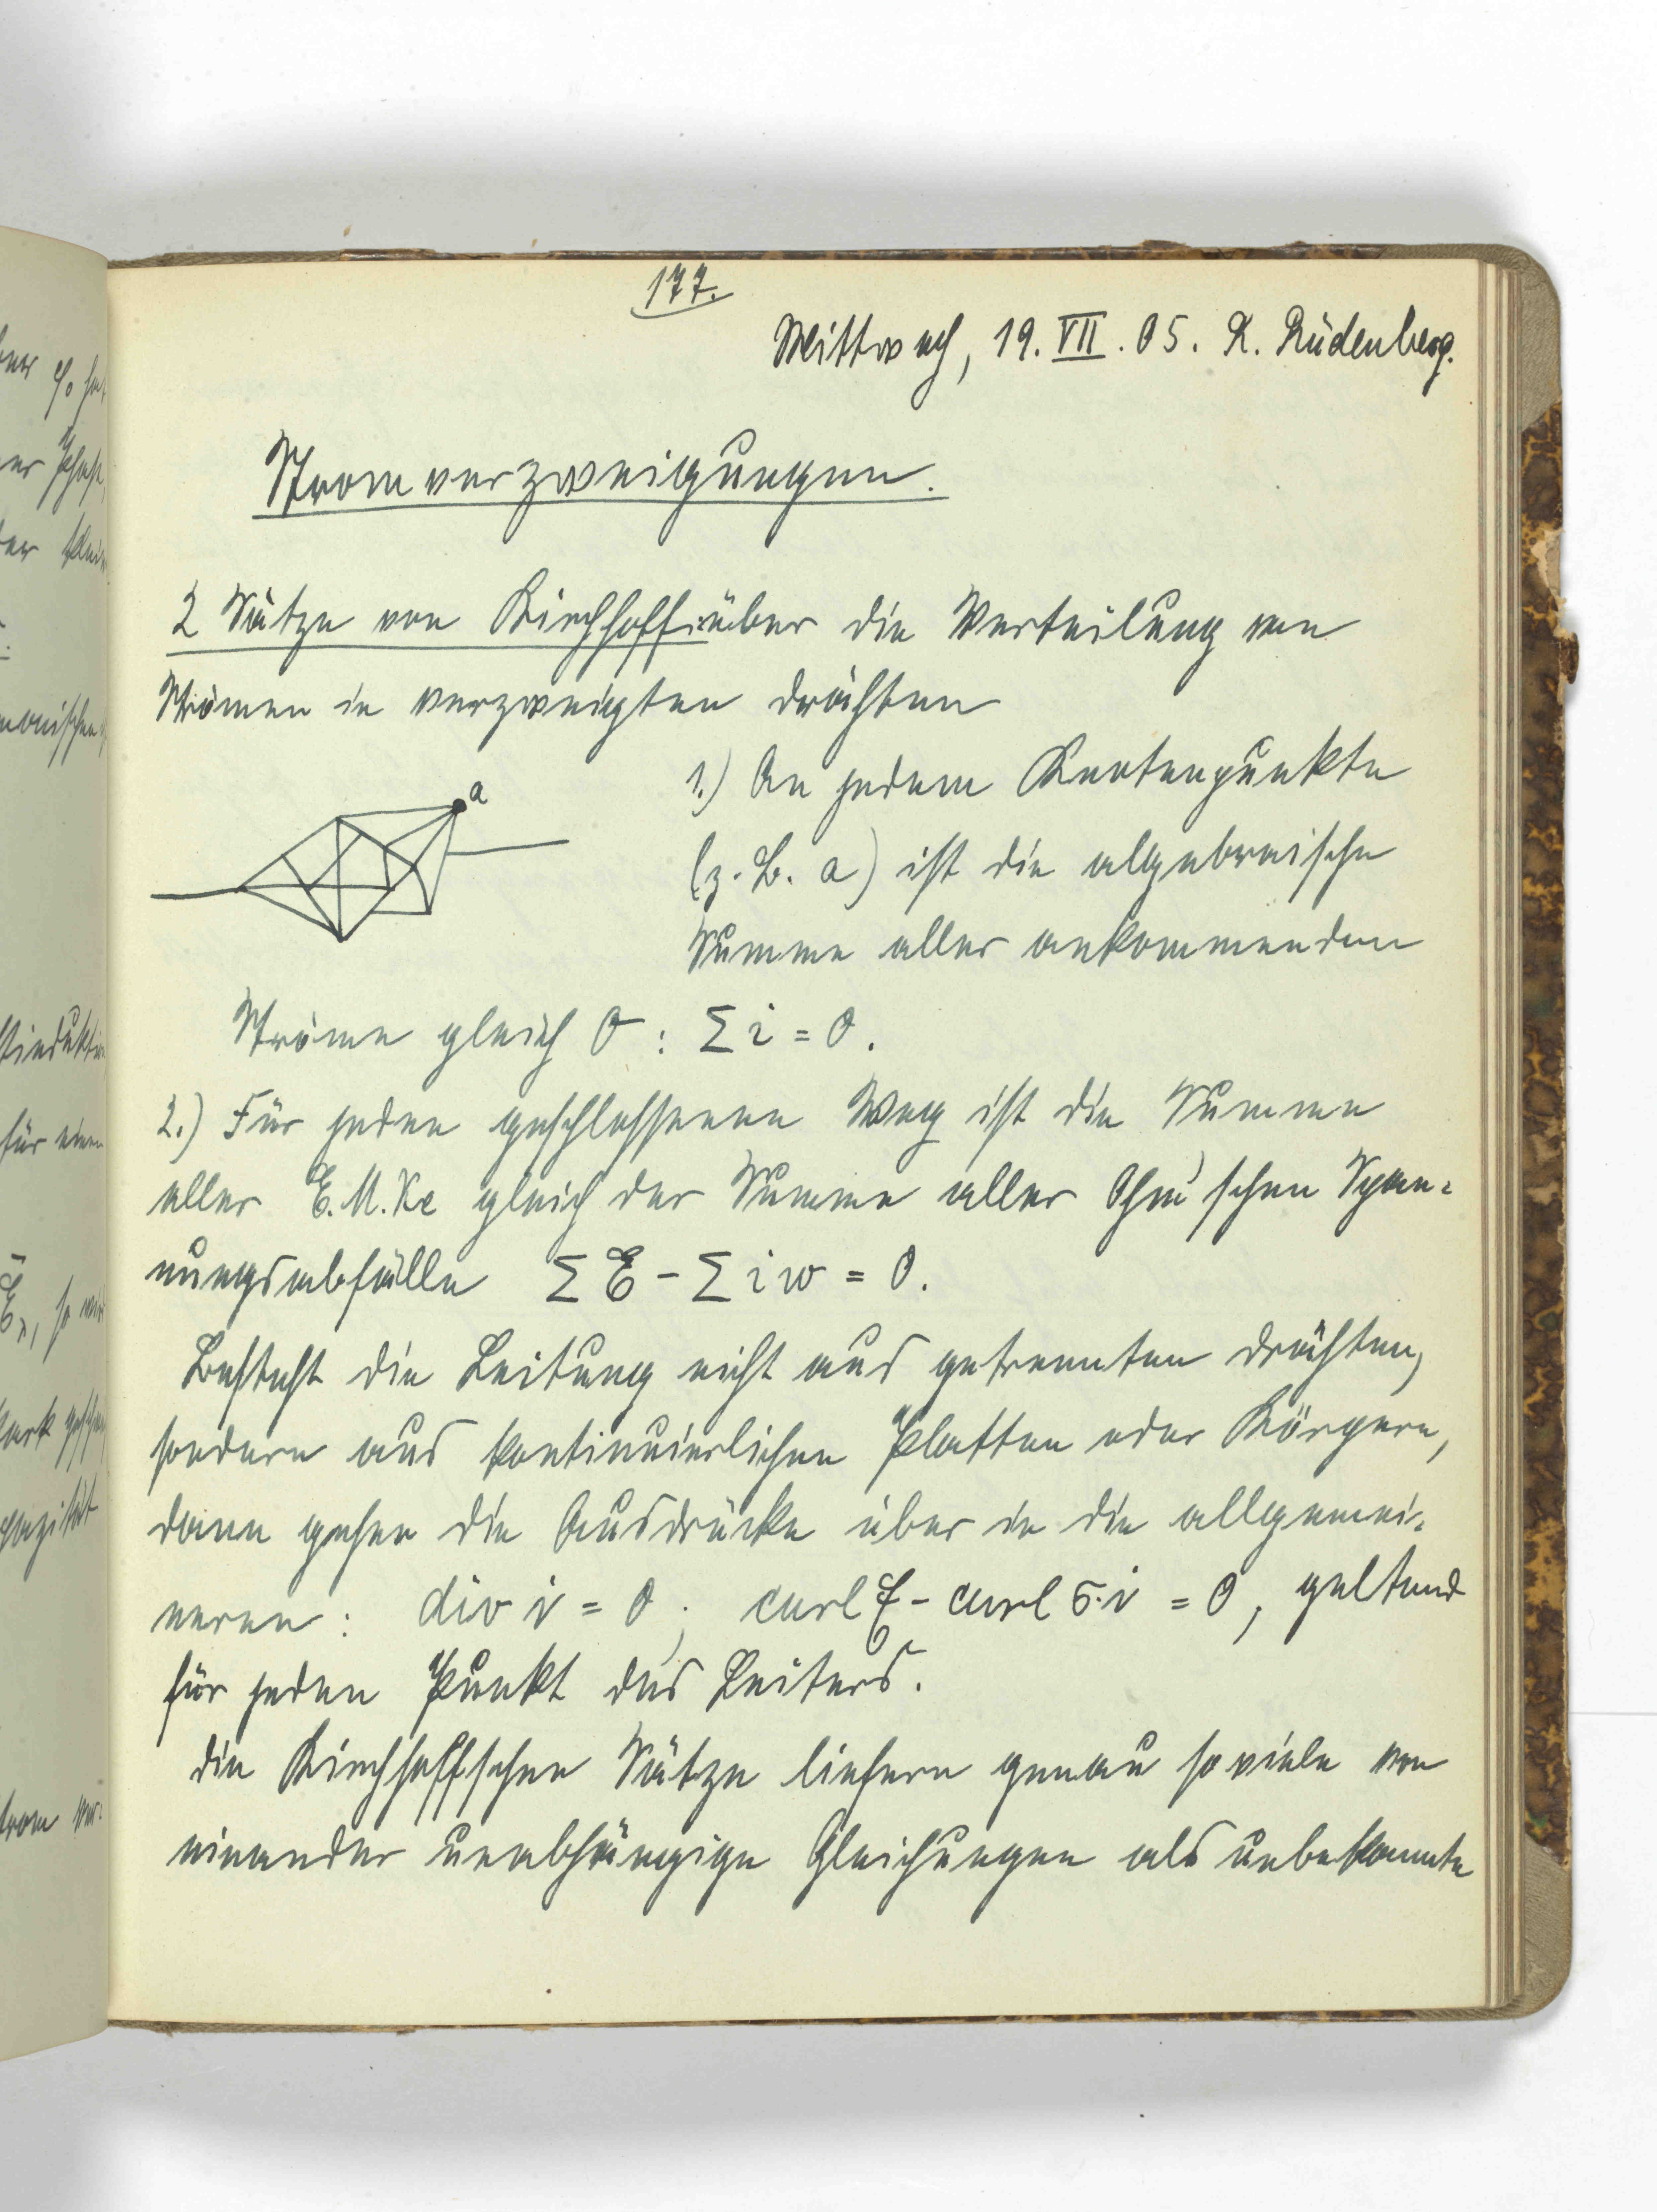 177.
Mittwoch, 19. VII. 05. R. Rüdenberg.
Stromverzweigungen.
2 Sätze von Kirchhoff über die Verteilung von
Strömen in verzweigten Drähten
a
1.) An jedem Knotenpunkte
(z. B. a) ist die algebraische
Summe aller ankommenden
Ströme gleich 0 : Σ i = 0.
2.) Für jeden geschlossenen Weg ist die Summe
aller E.M.Ke gleich der Summe aller Ohm'schen Span-
nungsabfälle Σ E - Σ i w = 0.
Besteht die Leitung nicht aus getrennten Drähten,
sondern aus kontinuierlichen Platten oder Körpern,
dann gehen die Ausdrücke über in die allgemei-
neren : div i = 0 ; curl E - curl σ·i = 0, geltend
für jeden Punkt des Leiters.
Die Kirchhoffschen Sätze liefern genau so viele von
einander unabhängige Gleichungen als unbekannte
für einen